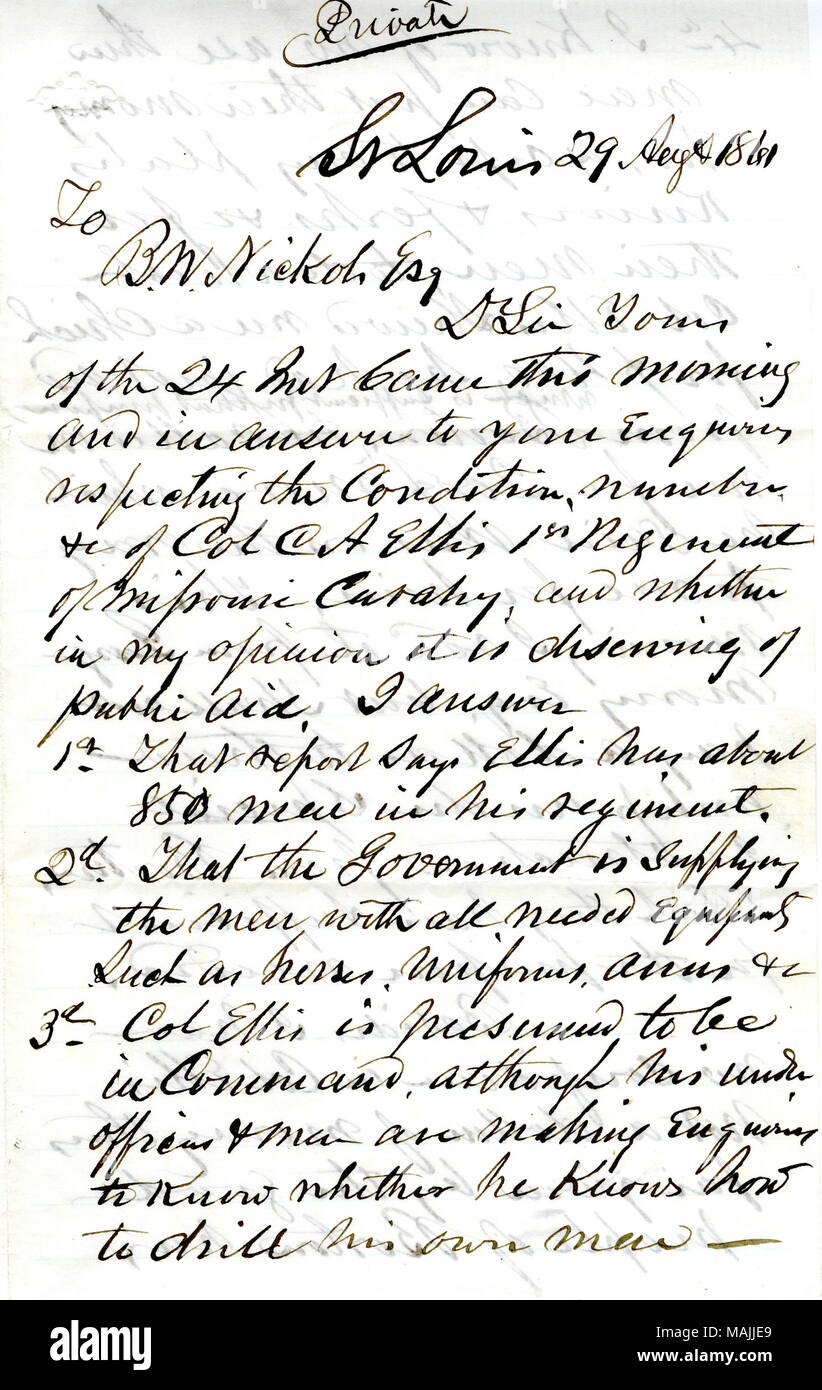 Private
St Louis 29 Augt 1861
To
B.W. Nickols Esq
Dr Sir Yours
of the 24 Inst Came this morning
and in answer to your Enquiries
respecting the Condition, number
&c of Col C A Ellis 1st Regement
of Missouri Cavalry, and whether
in my opinion it is deserving of
public aid, I answer
1st That report Says Ellis has about
850 men in his regiment.
2d. That the Government is Supplying
the men with all needed Equipments
Such as horses, Uniforms, arms &c
3d Col Ellis is presumed to be
in Command, although his under
officers & men are making Enquiries
to Know whether he Knows how
to drill his own men —
a alamy stock photo
alamy
Image ID: MAJJE9
www.alamy.com